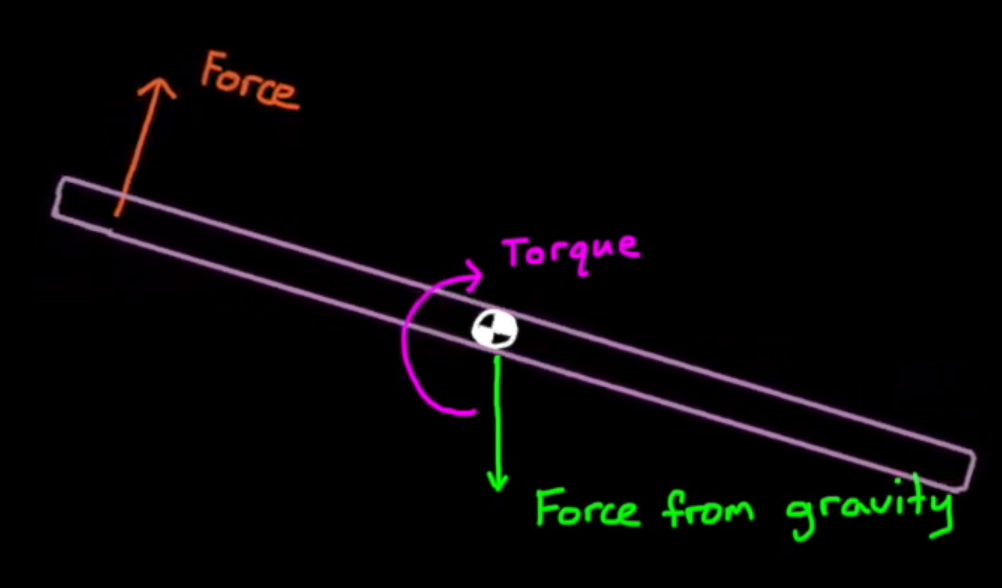 Force
Torque
Force from gravity